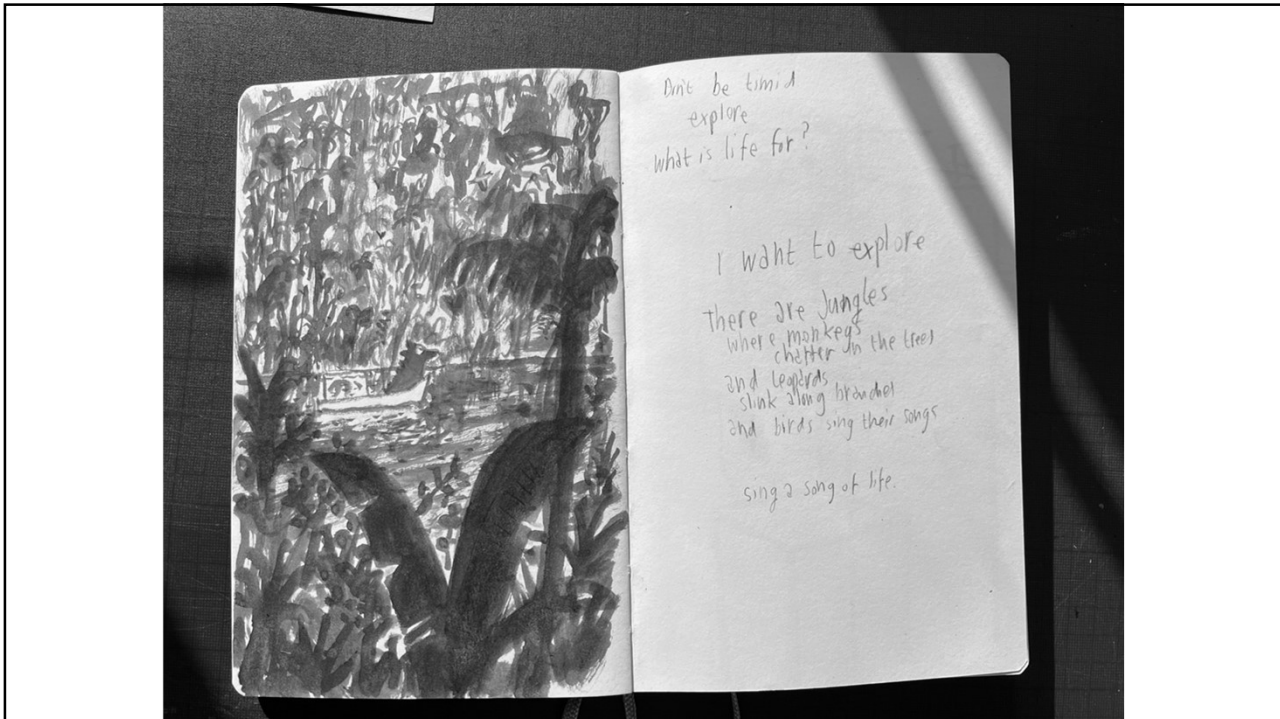 Don't be timid
explore
what is life for?
I want to explore
There are Jungles
where monkeys
chatter in the trees
and leopards
slink along branches
and birds sing their songs
sing a song of life.